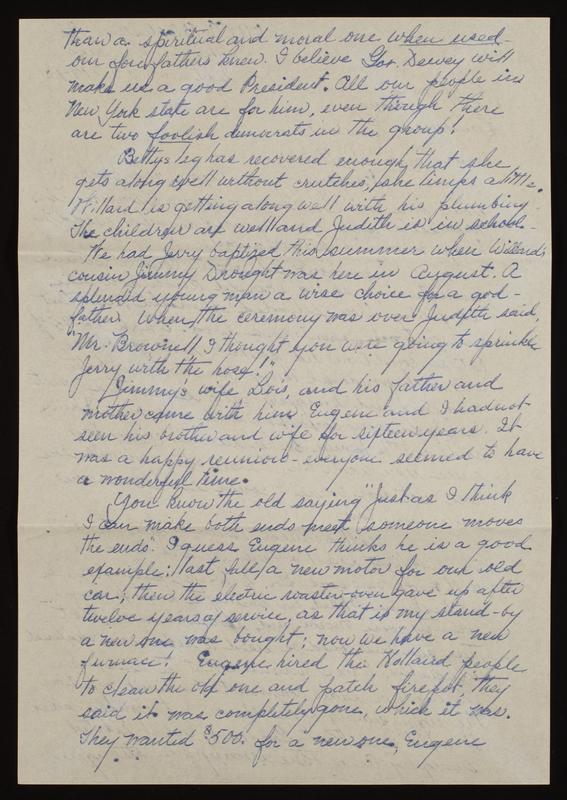 than a spiritual and moral one when used -
our forefathers knew. I believe Gov. Dewey will
make us a good President. All our people in
New York state are for him, even though there
are two foolish democrats in the group!
Bettys leg has recovered enough that she
gets along well without crutches, she limps a little.
Willard is getting along well with his plumbing
The children are well and Judith is in school.
We had Jerry baptized this summer when Willards
cousin Jimmy Drought was here in August. A
splendid young man a wise choice for a god-
father. When the ceremony was over Judith said,
"Mr. Brownell, I thought you were going to sprinkle
Jerry with the hose!"
Jimmy's wife Lois, and his father and
mother came with him. Eugene and I had not
seen his brother and wife for sixteen years. It
was a happy reunion - everyone seemed to have
a wonderful time.
You know the old saying "Just as I think
I can make both ends meet someone moves
the ends". I guess Eugene thinks he is a good
example: last fall a new motor for our old
car; then the electric roaster-oven gave up after
twelve years of service, as that is my stand-by
a new one was bought; now we have a new
furnace! Eugene hired the Holland people
to clean the old one and patch firepot, they
said it was completely gone, which it was.
They wanted $500. for a new one, Eugene